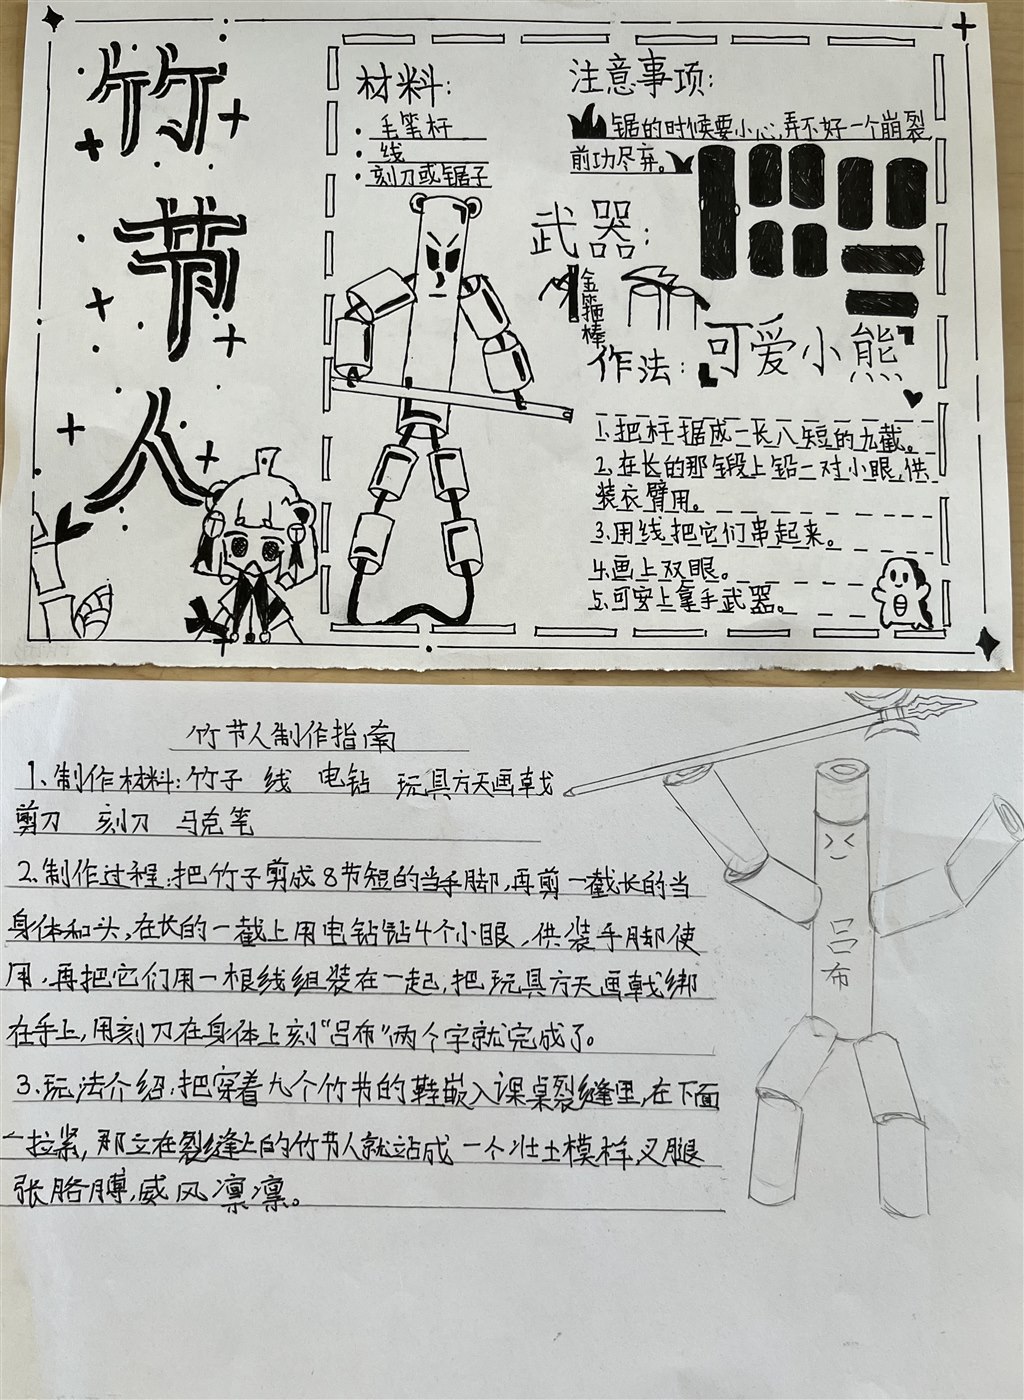 竹
节
人
材料:
·毛笔杆
·线
·刻刀或锯子
注意事项:
锯的时候要小心,弄不好一个崩裂
前功尽弃。
武器:
金箍棒
作法:可爱小熊
1.把杆据成一长八短的九截。
2.在长的那锻上铅一对小眼,供
装衣臂用。
3.用线把它们串起来。
4.画上双眼。
5.可安上拿手武器。
竹节人制作指南
1、制作材料:竹子 线 电钻 玩具方天画戟
剪刀 刻刀 马克笔
2、制作过程:把竹子剪成8节短的当手脚,再剪一截长的当
身体和头,在长的一截上用电钻钻4个小眼,供装手脚使
用,再把它们用一根线组装在一起,把玩具方天画戟绑
在手上,用刻刀在身体上刻“吕布”两个字就完成了。
3、玩法介绍:把穿着九个竹节的鞋嵌入课桌裂缝里,在下面
一拉紧,那立在裂缝上的竹节人就站成一个壮士模样,叉腿
张胳膊,威风凛凛。
吕
布